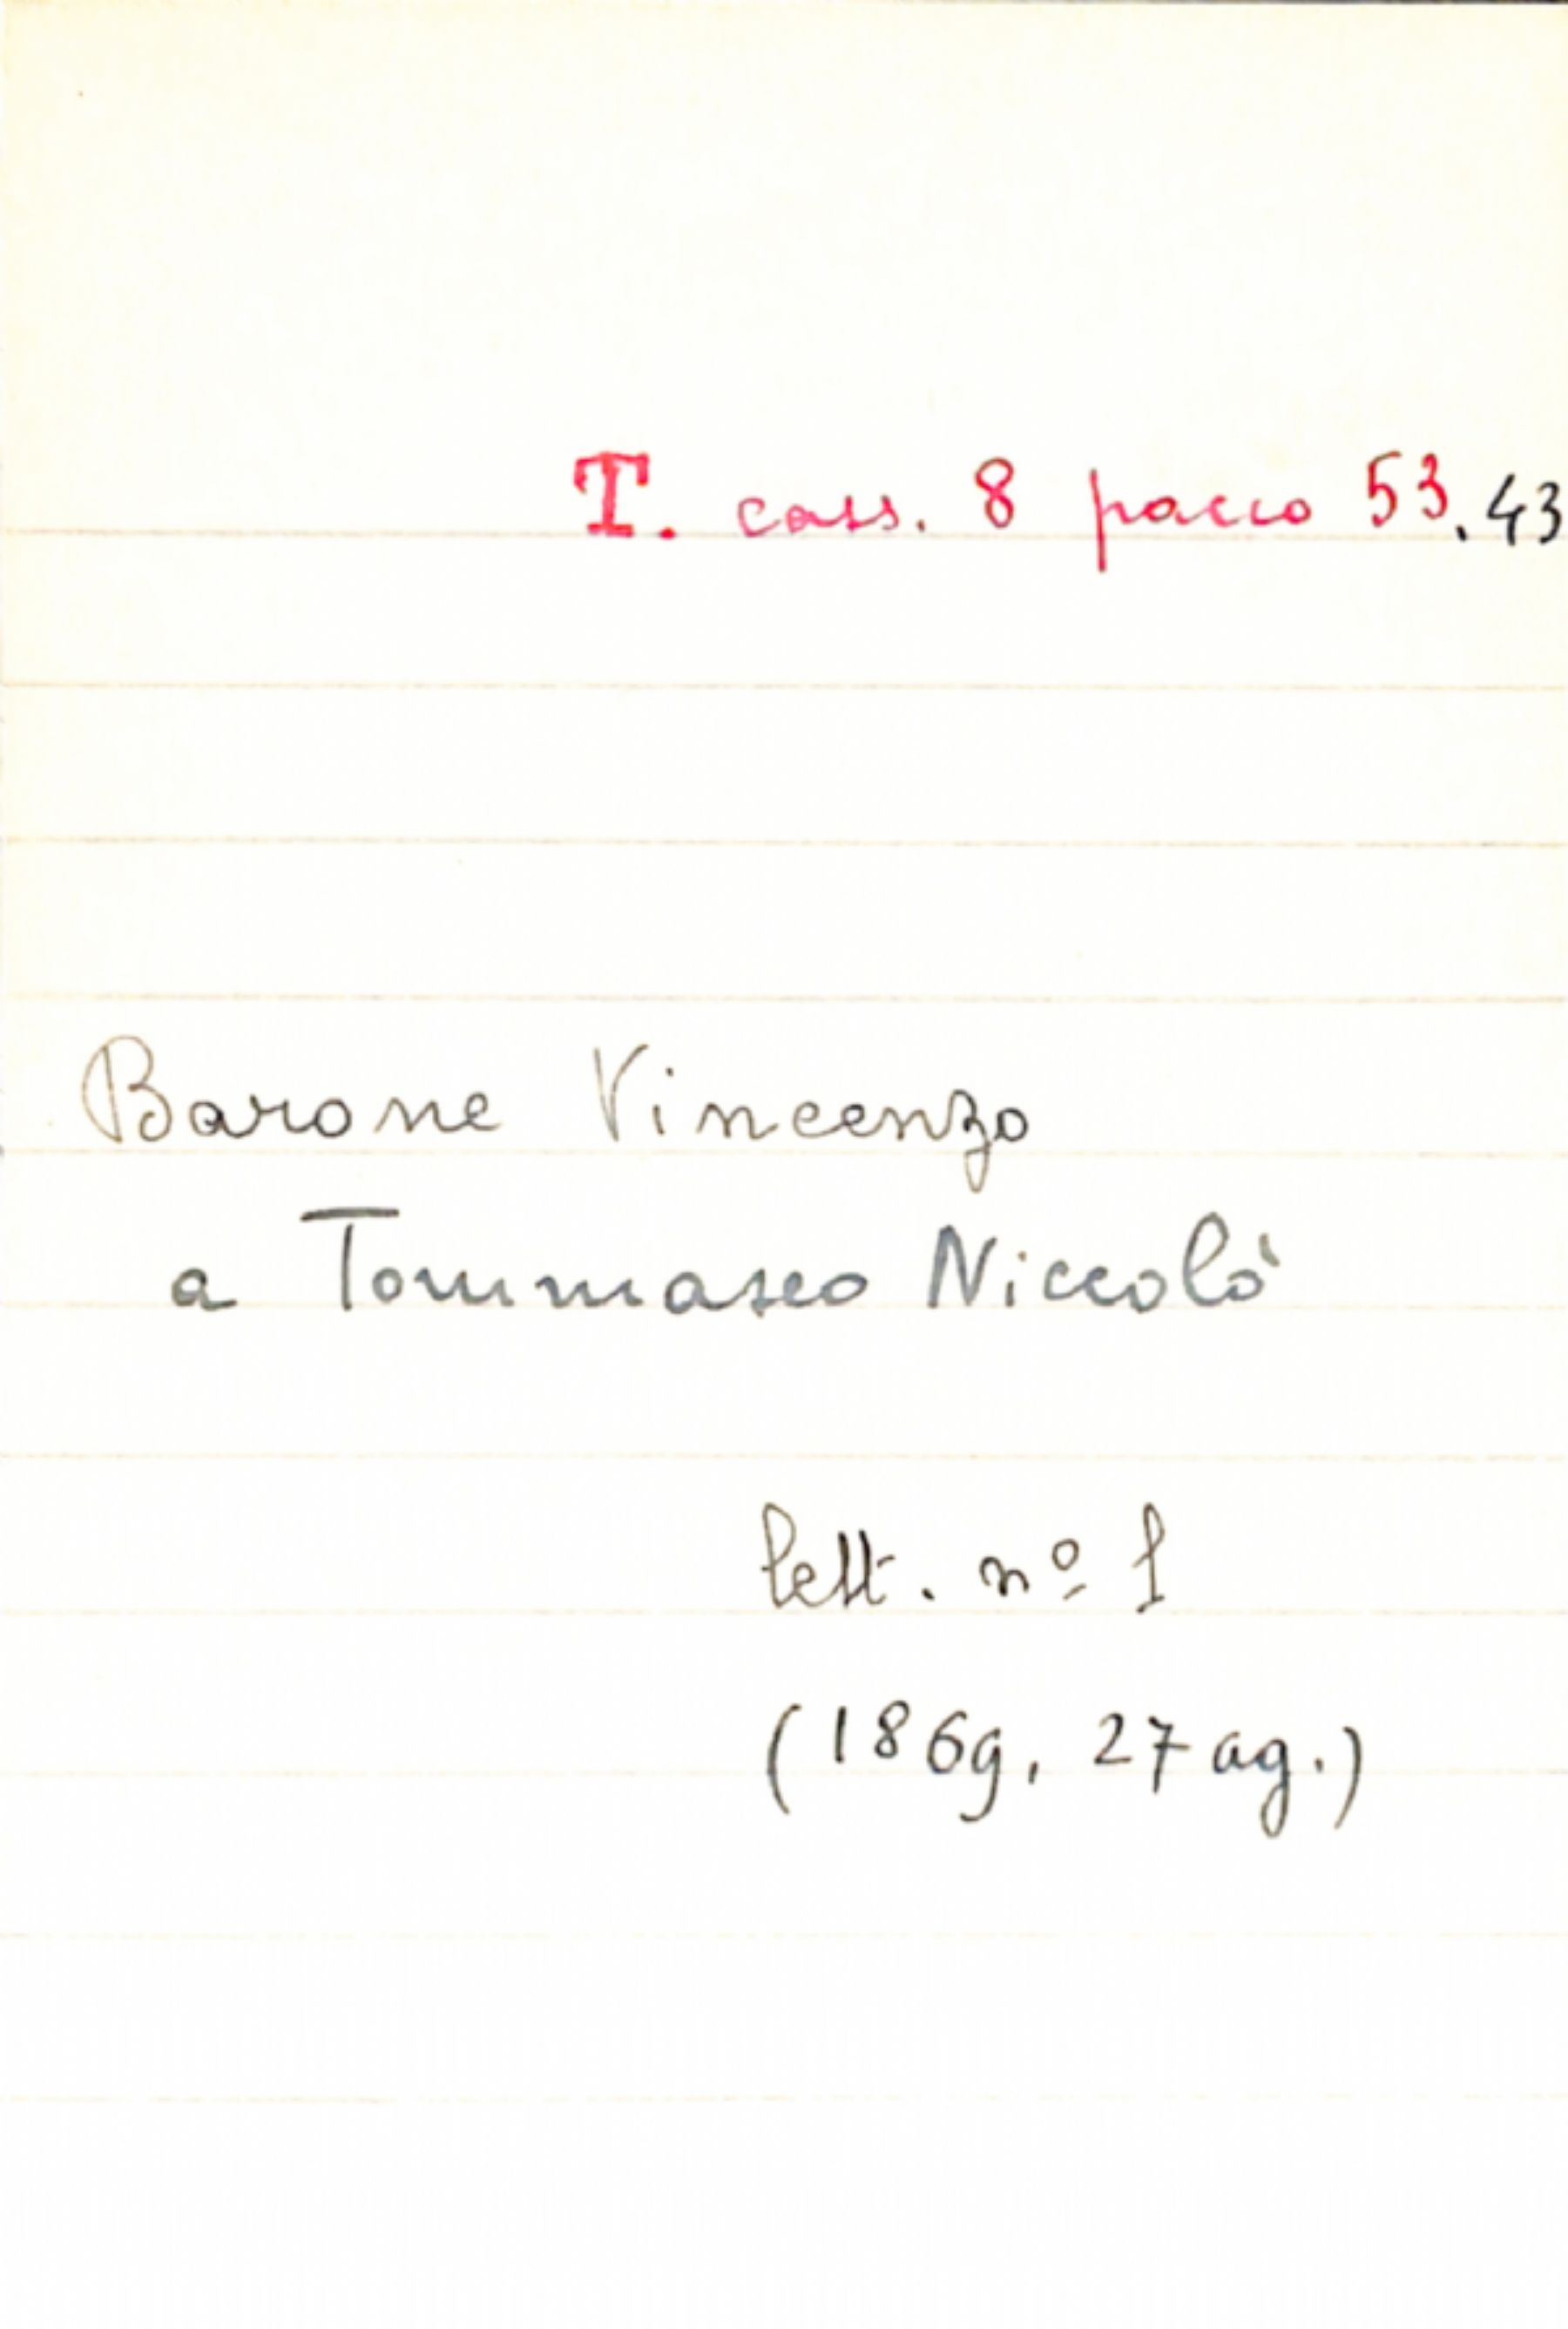 T. cass. 8 pacco 53.43
Barone Vincenzo
a Tommaseo Niccolò
lett. nº 1
(1869, 27 ag.)